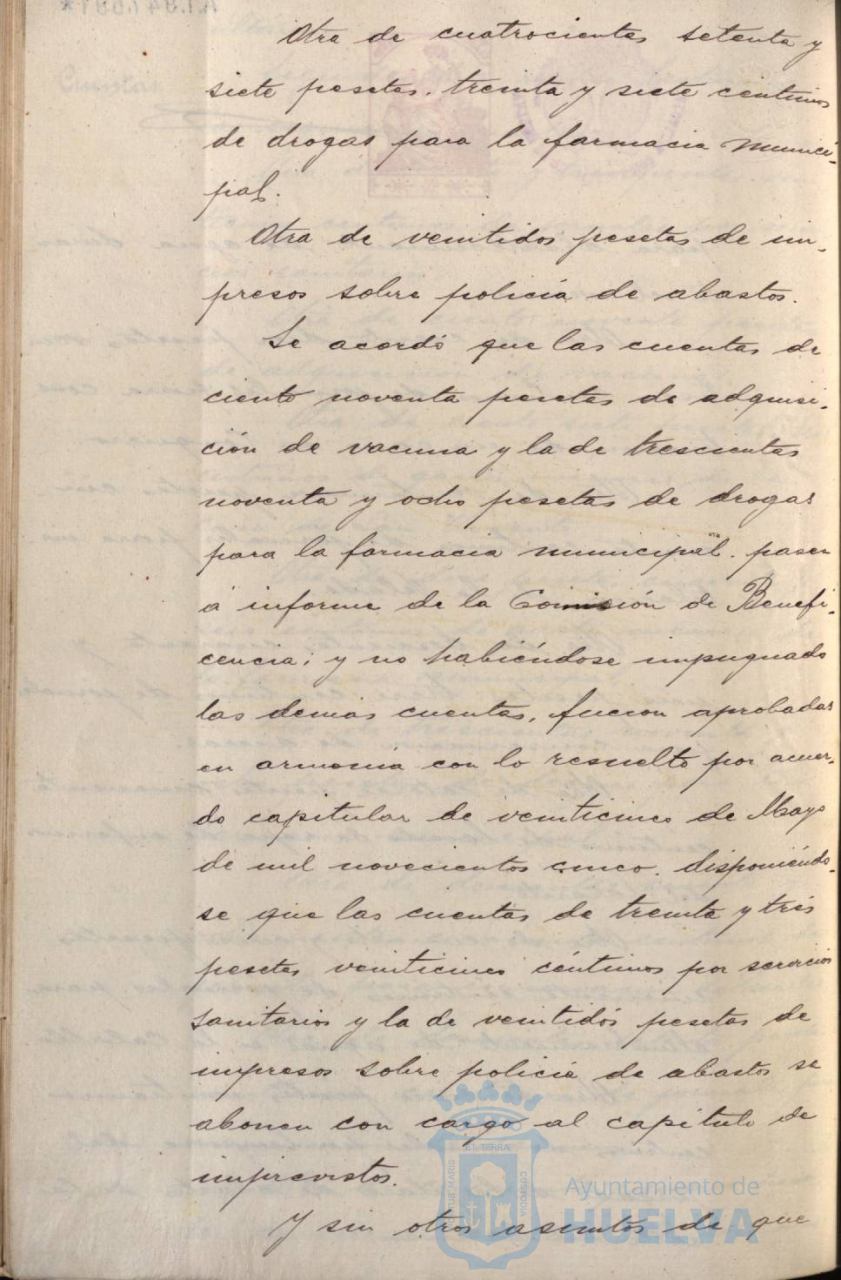 Otra de cuatrocientas setenta y
siete pesetas, treinta y siete centimos
de drogas para la farmacia munici-
pal.
Otra de veintidos pesetas de im-
presos sobre policía de abastos.
Se acordó que las cuentas de
ciento noventa pesetas de adquisi-
ción de vacuna y la de trescientas
noventa y ocho pesetas de drogas
para la farmacia municipal, pasen
á informe de la Comisión de Benefi-
cencia; y no habiéndose impugnado
las demás cuentas, fueron aprobadas
en armonia con lo resuelto por acuer-
do capitular de veinticinco de Mayo
de mil novecientos cinco, disponiéndo-
se que las cuentas de treinta y tres
pesetas veinticinco céntimos por servicios
sanitarios y la de veintidós pesetas de
impresos sobre policía de abastos se
abonen con cargo al capitulo de
imprevistos.
Y sin otros asuntos de que
Ayuntamiento de
HUELVA